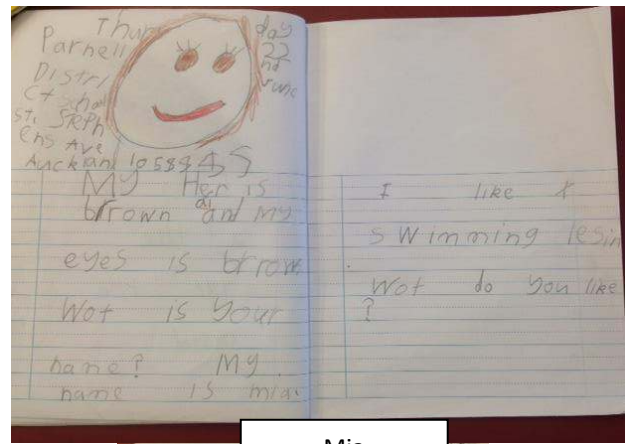 Thurs day
Parnell 22
Distri nd
ct school June
St. Steph
ens Ave
Auckland
My Her is
brown and my
eyes is brown
Wot is your
name? My
name is mia.
I like
swimming lesin
.
Wot do you like
?
Mia